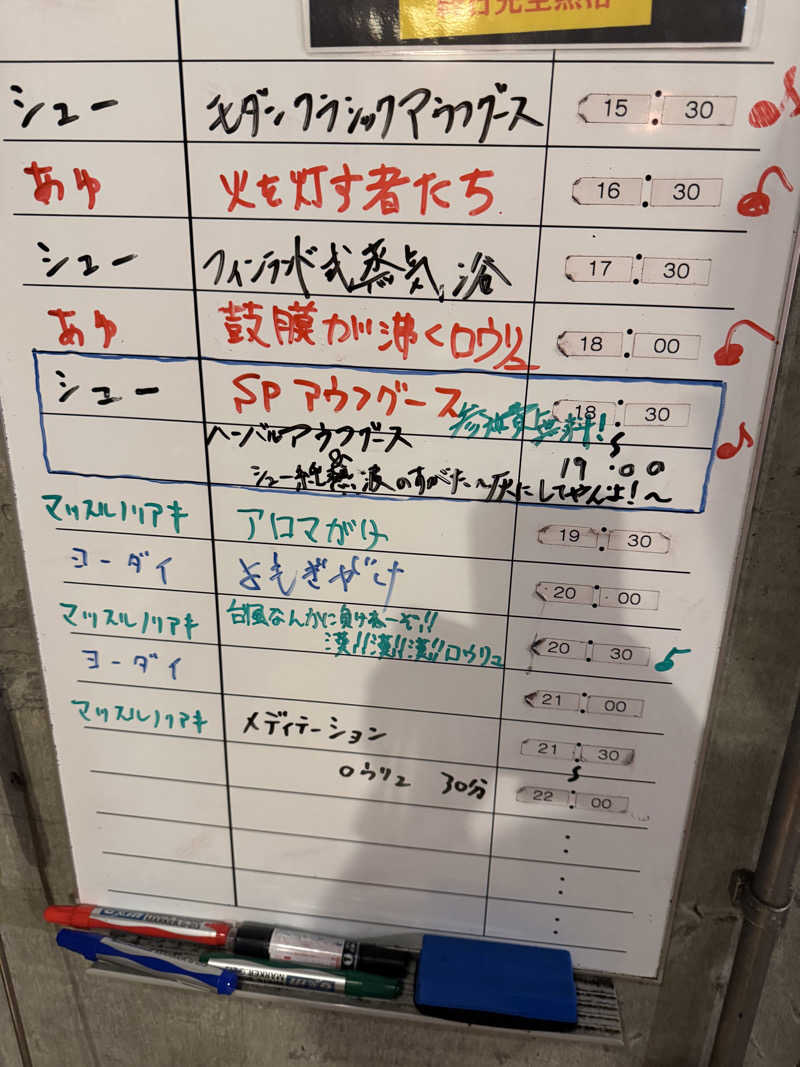 シュー モダンクラシックアウフグース 15:30
あゆ 火を灯す者たち 16:30
シュー フィンランド式蒸気浴 17:30
あゆ 鼓膜が沸くロウリュ 18:00
シュー SPアウフグース 18:30
参加費無料!
ハーバルアウフグース
&
シュー 熱波のすがた〜灰にしてやんよ!〜 19:00
マッスルノリアキ アロマがけ 19:30
ヨーダイ よもぎがけ 20:00
マッスルノリアキ 台風なんかに負けねーぞ!!
漢!!漢!!漢!!ロウリュ 20:30
ヨーダイ 21:00
マッスルノリアキ メディテーション 21:30
ロウリュ 30分 22:00